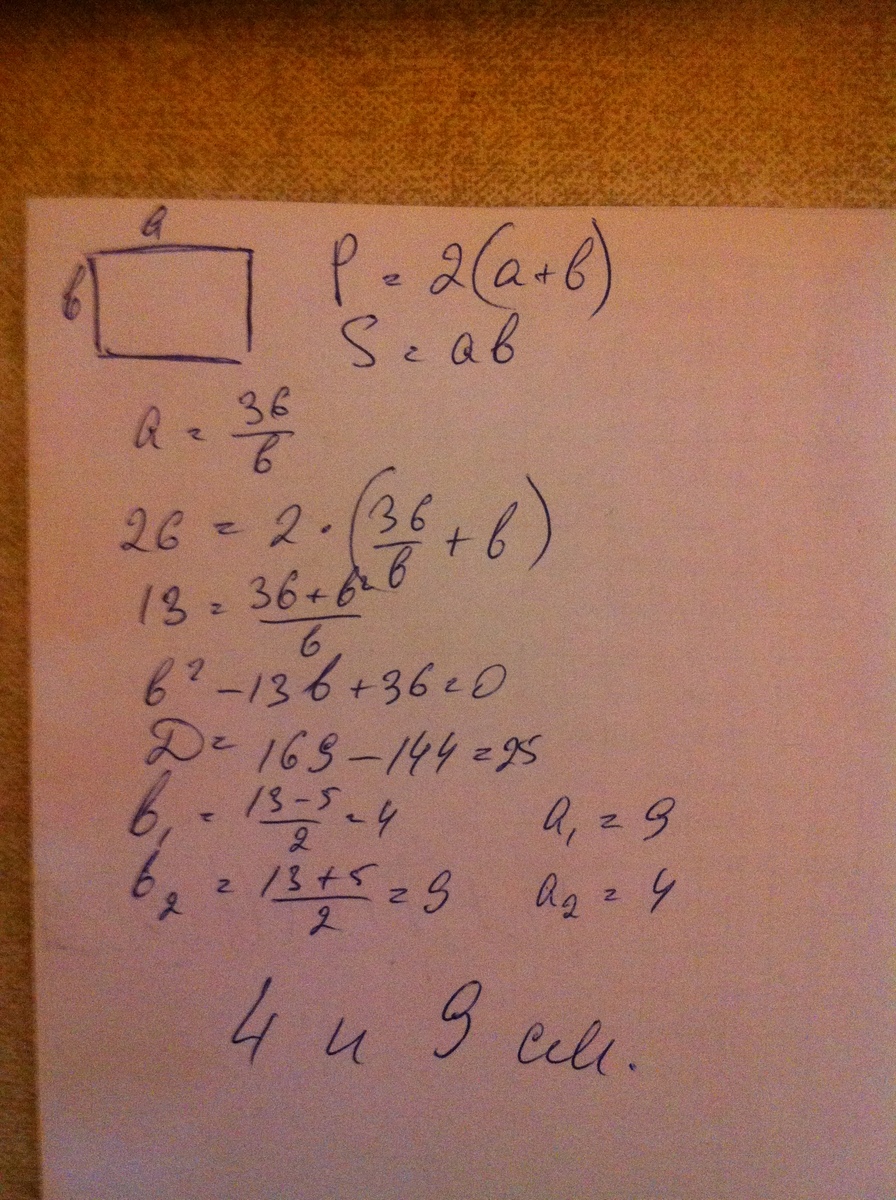 a
b
P = 2(a+b)
S = ab
a = 36/b
26 = 2 · (36/b + b)
13 = 36+b²/b
b² - 13b + 36 = 0
D = 169 - 144 = 25
b₁ = 13-5/2 = 4 a₁ = 9
b₂ = 13+5/2 = 9 a₂ = 4
4 и 9 см.